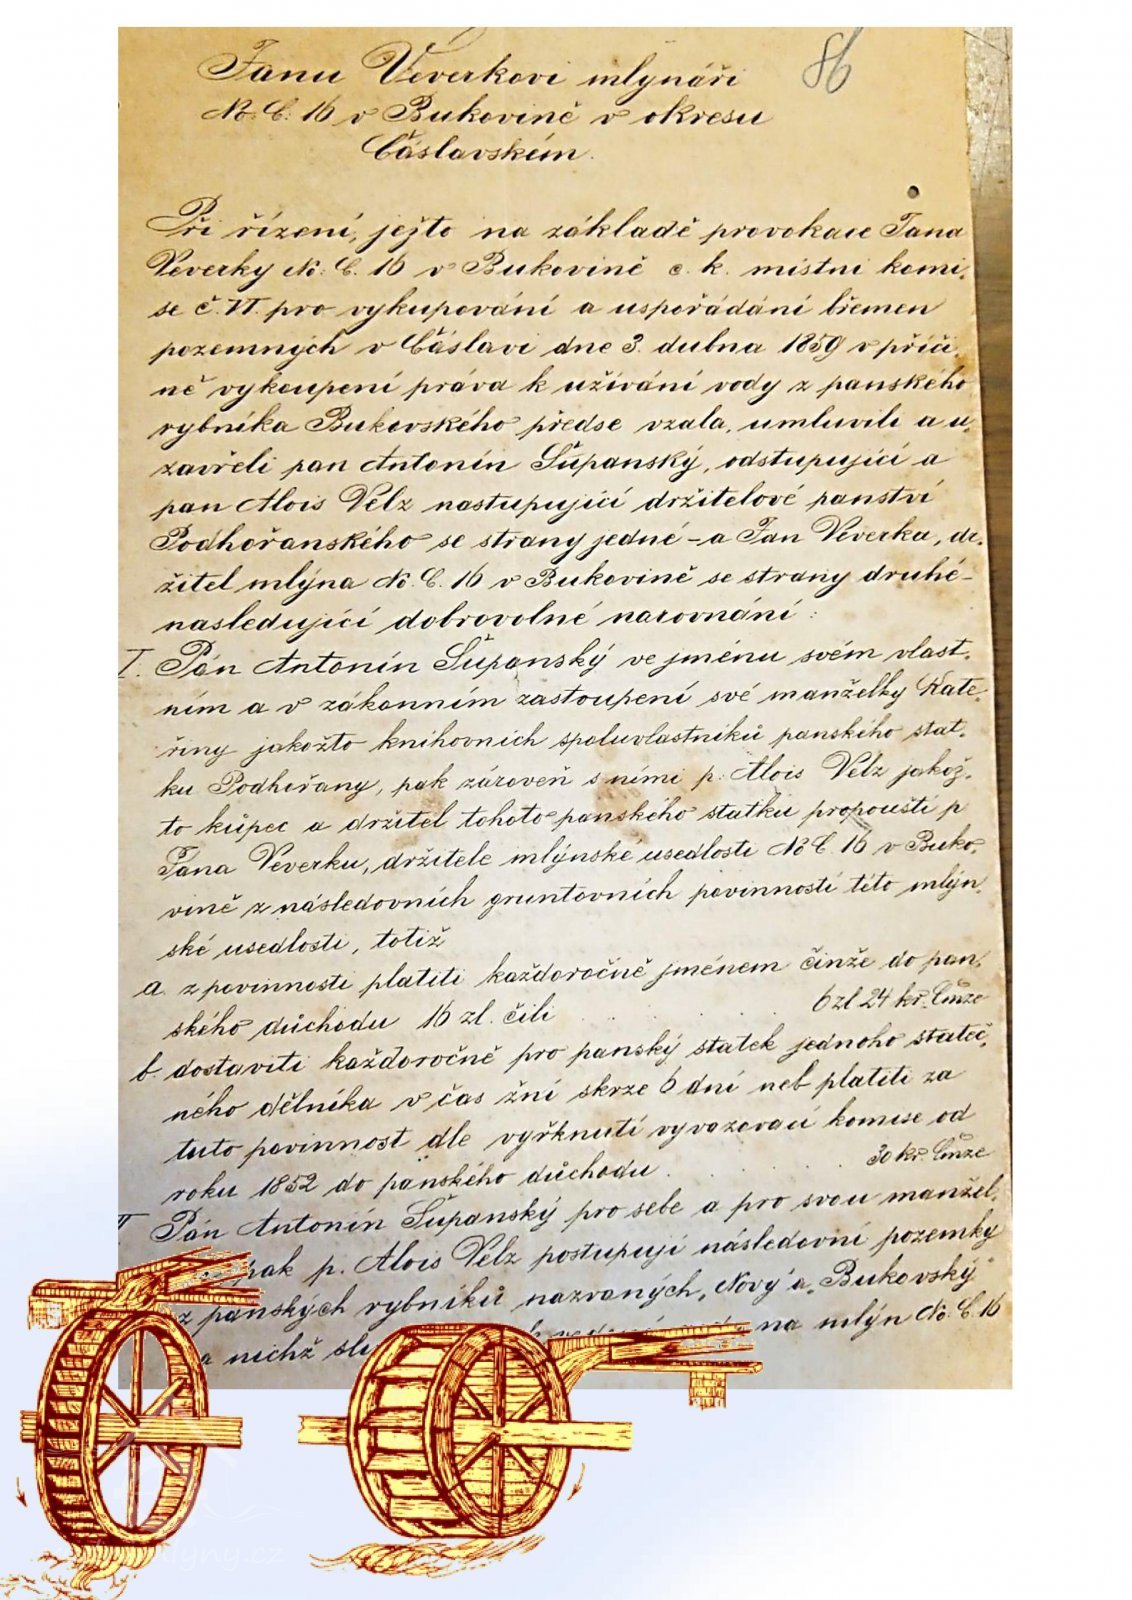 86
Janu Veverkovi mlynáři
No. C. 16 v Bukovině v okresu
Čáslavském.
Při řízení, ježto na základě provokace Jana
Veverky No: C. 16 v Bukovině c. k. místní komi-
se č. VI. pro vykupování a uspořádání břemen
pozemných v Čáslavi dne 3. dubna 1859 v příči-
ně vykoupení práva k užívání vody z panského
rybníka Bukovského předse vzala, umluvili a u-
zavřeli pan Antonín Šupanský, odstupující a
pan Alois Velz nastupující držitelové panství
Podhořanského se strany jedné – a Jan Veverka, dr-
žitel mlýna No. C. 16 v Bukovině se strany druhé –
nasledující dobrovolné narovnání:
I. Pán Antonín Šupanský ve jménu svém vlast-
ním a v zákonním zastoupení své manželky Kate-
řiny jakožto knihovních spoluvlastníků panského stat-
ku Podhořany, pak zároveň s nimi p. Alois Velz jakož-
to kůpec a držitel tohoto panského statku propouští p
Jana Veverku, držitele mlýnské usedlosti No C. 16 v Buko-
vině z následovních gruntovních povinností této mlýn-
ské usedlosti, totiž
a. z povinnosti platiti každoročně jménem činže do pan-
ského důchodu 16 zl. čili . . . . 6 zl 24 kr. Činze
b. dostaviti každoročně pro panský statek jednoho stateč-
ného dělníka v čas žní skrze 6 dní neb platiti za
tuto povinnost dle vyřknutí vyvazovací komise od
roku 1852 do panského důchodu . . . . 30 kr. Činze
II. Pán Antonín Šupanský pro sebe a pro svou manžel-
pak p. Alois Velz postupují následovní pozemky
z panských rybníků nazvaných „Nový" a „Bukovský"
nichž na mlýn No. C. 16